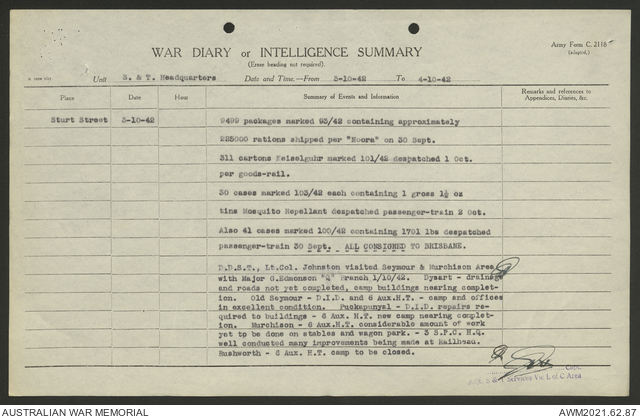 Army Form C. 2118
(adapted.)
WAR DIARY or INTELLIGENCE SUMMARY
(Erase heading not required).
Unit S. & T. Headquarters Date and Time.—From 3-10-42 To 4-10-42
Place Date Hour Summary of Events and Information Remarks and references to Appendices, Diaries, &c.
Sturt Street 3-10-42 9499 packages marked 93/42 containing approximately
225000 rations shipped per "Noora" on 30 Sept.
311 cartons Keiselguhr marked 101/42 despatched 1 Oct.
per goods-rail.
30 cases marked 103/42 each containing 1 gross 1½ oz
tins Mosquito Repellant despatched passenger-train 2 Oct.
Also 41 cases marked 100/42 containing 1701 lbs despatched
passenger-train 30 Sept. ALL CONSIGNED TO BRISBANE.
D.D.S.T., Lt.Col. Johnston visited Seymour & Murchison Area
with Major G.Edmonson "Q" Branch 1/10/42. Dysart - drainage
and roads not yet completed, camp buildings nearing complet-
ion. Old Seymour - D.I.D. and 6 Aux.H.T. - camp and offices
in excellent condition. Puckapunyal - D.I.D. repairs re-
quired to buildings - 6 Aux. H.T. new camp nearing complet-
ion. Murchison - 6 Aux.H.T. considerable amount of work
yet to be done on stables and wagon park. - 3 S.P.C. H.Q.
well conducted many improvements being made at Railhead.
Rushworth - 6 Aux. H.T. camp to be closed.
Capt.
Services Vic L of C Area
AUSTRALIAN WAR MEMORIAL
AWM2021.62.87